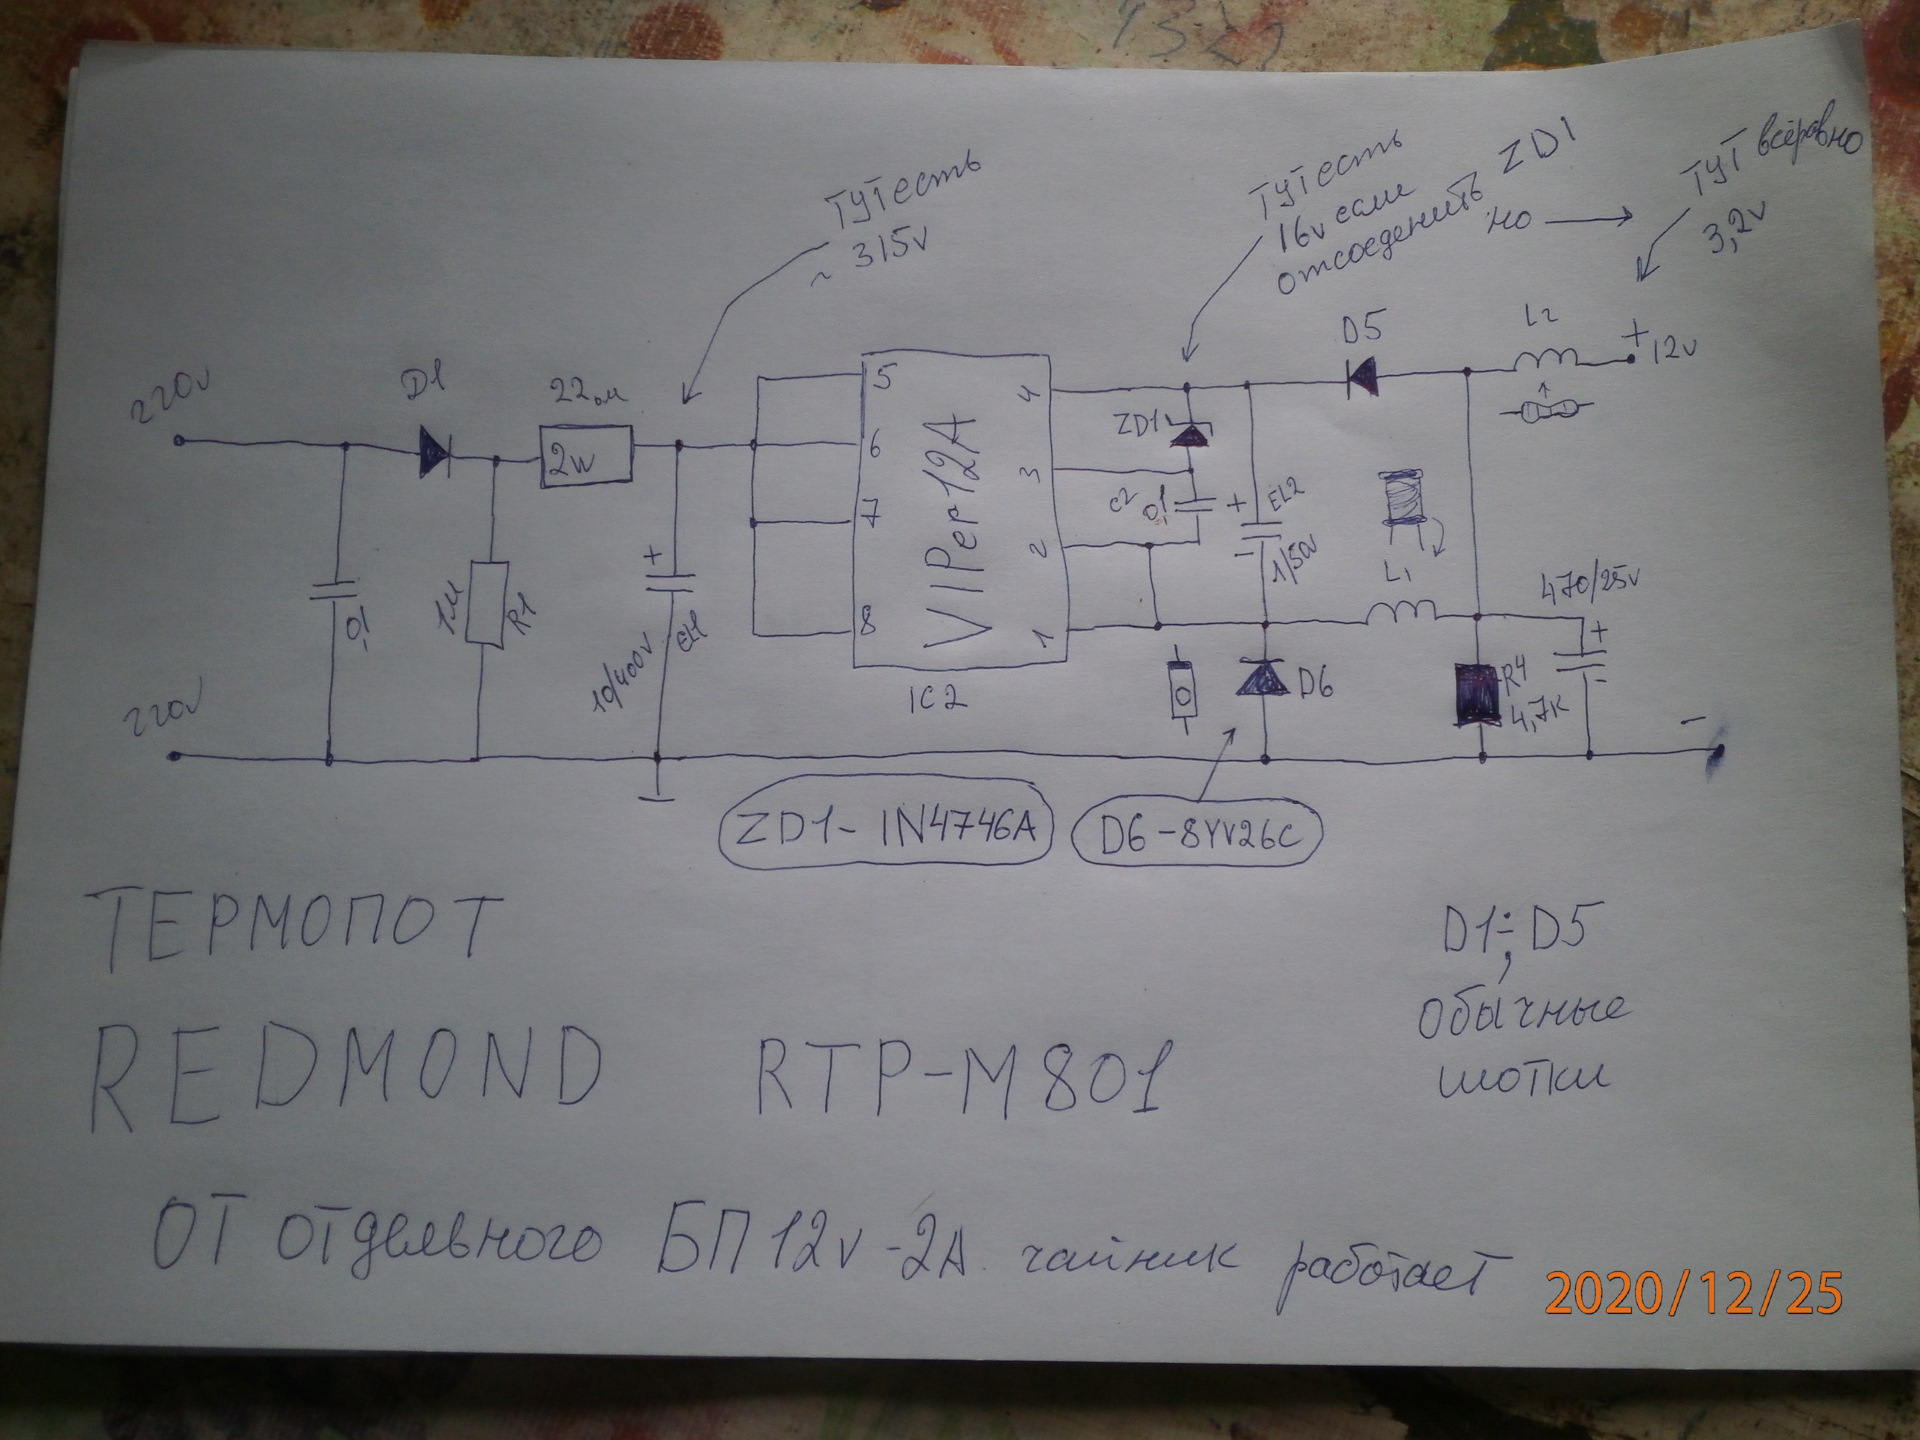 ТУТ есть
~ 315v
ТУТ есть
16v если
отсоеденить ZD1
но
ТУТ всёравно
3,2v
220v
D1
22ом
2w
5
6
7
8
4
3
2
1
VIPer12A
IC2
ZD1
C2
0,1
+
EL2
1/50v
-
D5
L2
+
12v
L1
470/25v
+
-
0,1
1М
R1
+
10/400v
EL1
D6
R4
4,7к
-
220v
ZD1- 1N4746A
D6-8YV26C
ТЕРМОПОТ
REDMOND RTP-M801
D1÷D5
обычные
шотки
ОТ отдельного БП 12v-2А чайник работает
2020/12/25